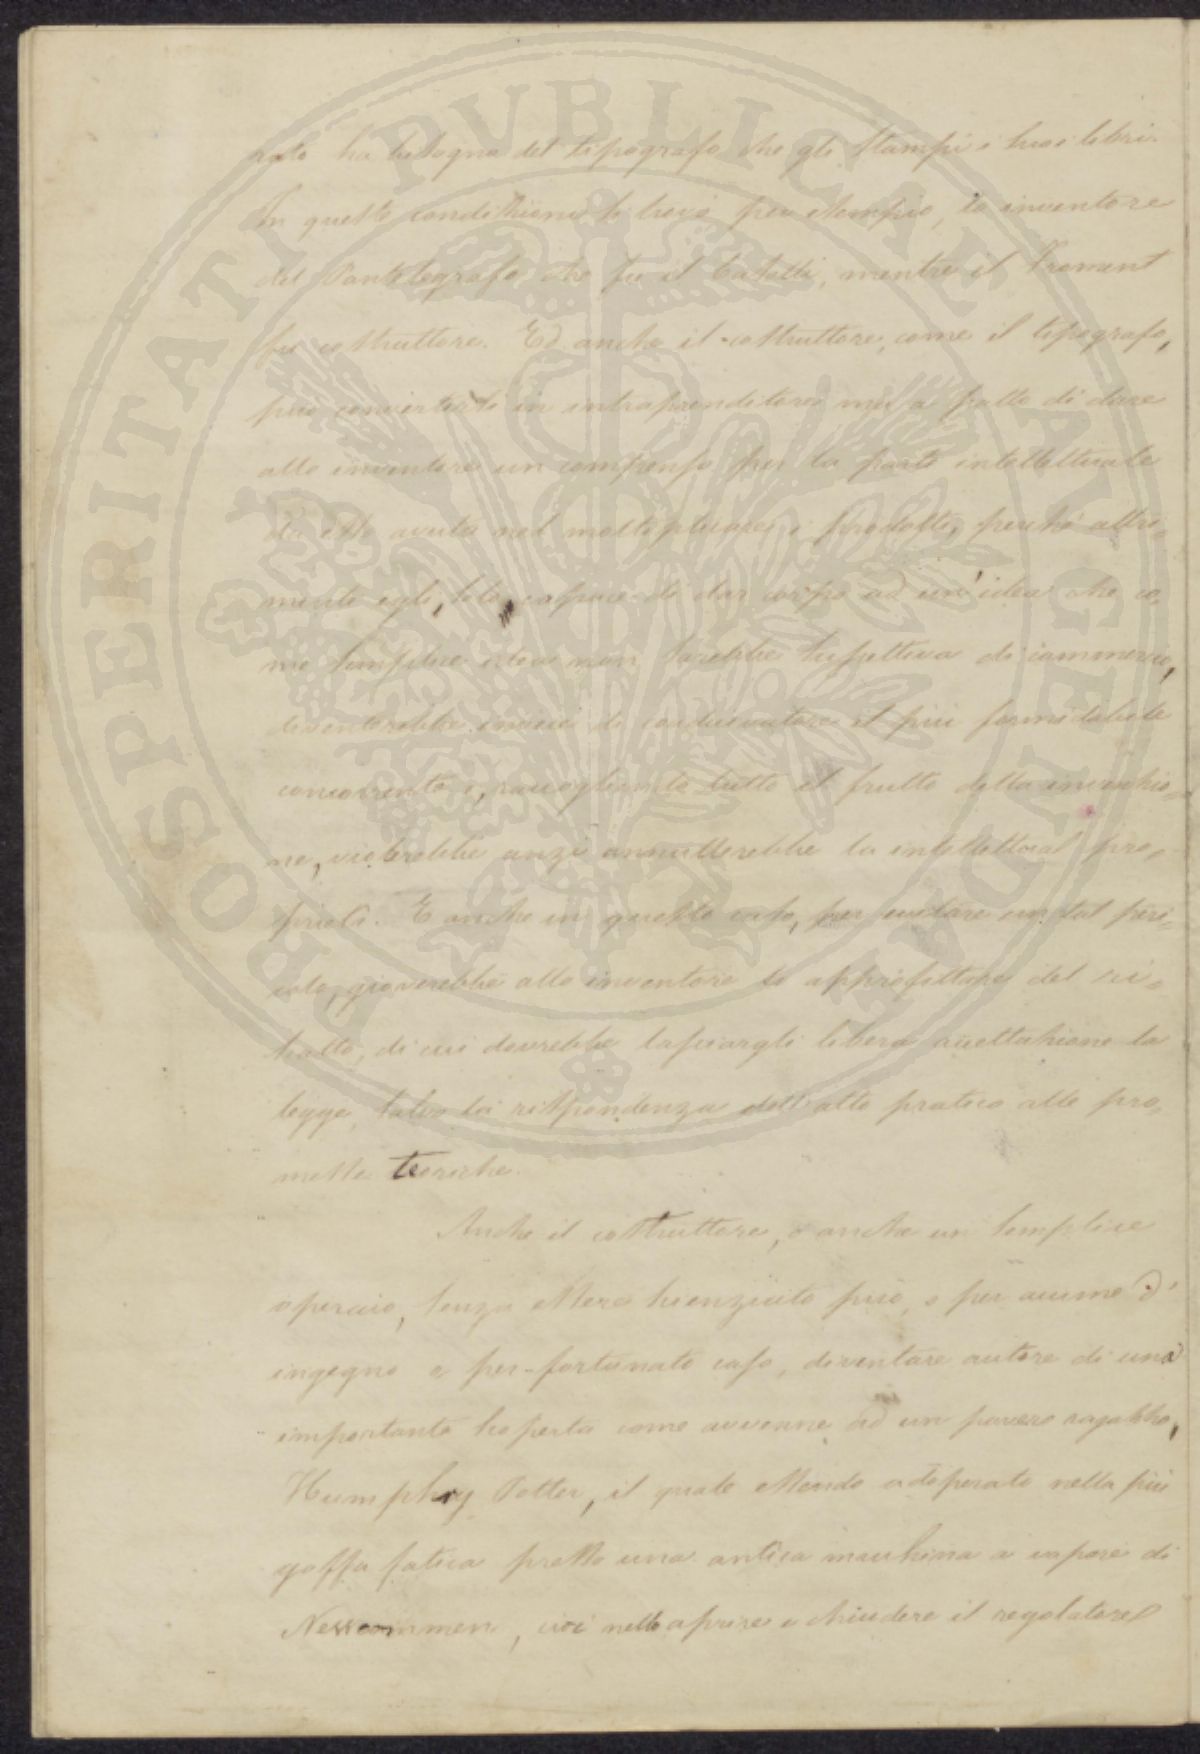 rato ha bisogno del tipografo che gli stampi i suoi libri.
In queste condizioni si trovò per esempio, lo inventore
del Pantelegrafo che fu il Caselli, mentre il Froment
fu costruttore. Ed anche il costruttore, come il tipografo,
può convertirsi in intraprenditore ma a patto di dare
allo inventore un compenso per la parte intellettuale
da esso avuta nel moltiplicare i prodotti, perchè altri-
menti egli, solo capace di dar corpo ad un'idea che co-
me semplice idea non sarebbe suscettiva di commercio,
diventerebbe invece di coadiuvatore il più formidabile
concorrente e, raccogliendo tutto il frutto della invenzio-
ne, violerebbe anzi annullerebbe la intellettual pro-
prietà. E anche in questo caso, per evitare un tal peri-
colo, gioverebbe allo inventore lo approfittare del ri-
scatto, di cui dovrebbe lasciargli libera accettazione la
legge, salva la rispondenza dell'atto pratico alle pro-
messe teoriche.
Anche il costruttore, o anche un semplice
operaio, senza essere scienziato può, o per acume d'
ingegno o per fortunato caso, diventare autore di una
importante scoperta come avvenne ad un povero ragazzo,
Humphry Potter, il quale essendo adoperato nella più
goffa fatica presso una antica macchina a vapore di
Newcommen, cioè nello aprire e chiudere il regolatore
PROSPERITATI PVBLICAE AVGENDAE